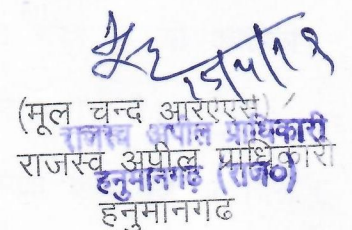 (मूल चन्द आरएएस)
राजस्व अपील प्राधिकारी
राजस्व अपील प्राधिकारी
हनुमानगढ़ (राज०)
हनुमानगढ